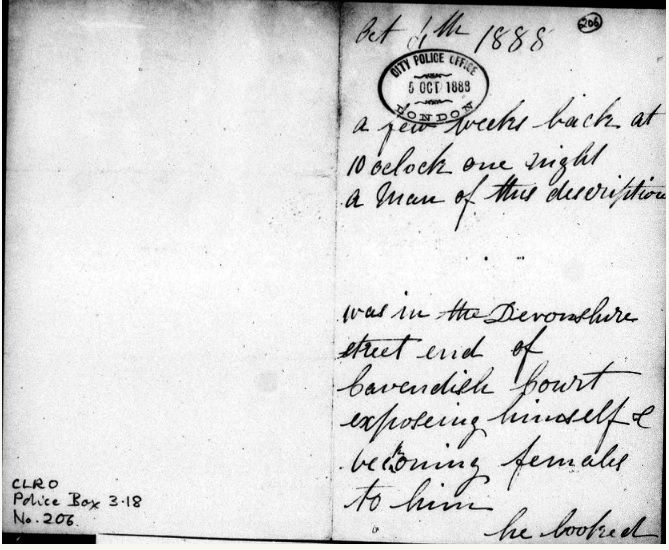 Oct 4th 1888
206
CITY POLICE OFFICE
5 OCT 1888
LONDON
a few weeks back at
10 oclock one night
a man of this description
was in the Devonshire
street end of
Cavendish Court
exposing himself &
beckoning females
to him
he looked
CLRO
Police Box 3.18
No. 206.